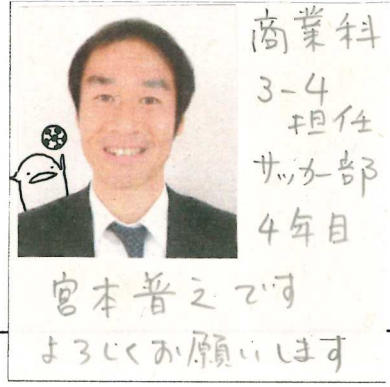 商業科
3-4
担任
サッカー部
4年目
宮本普之です
よろしくお願いします